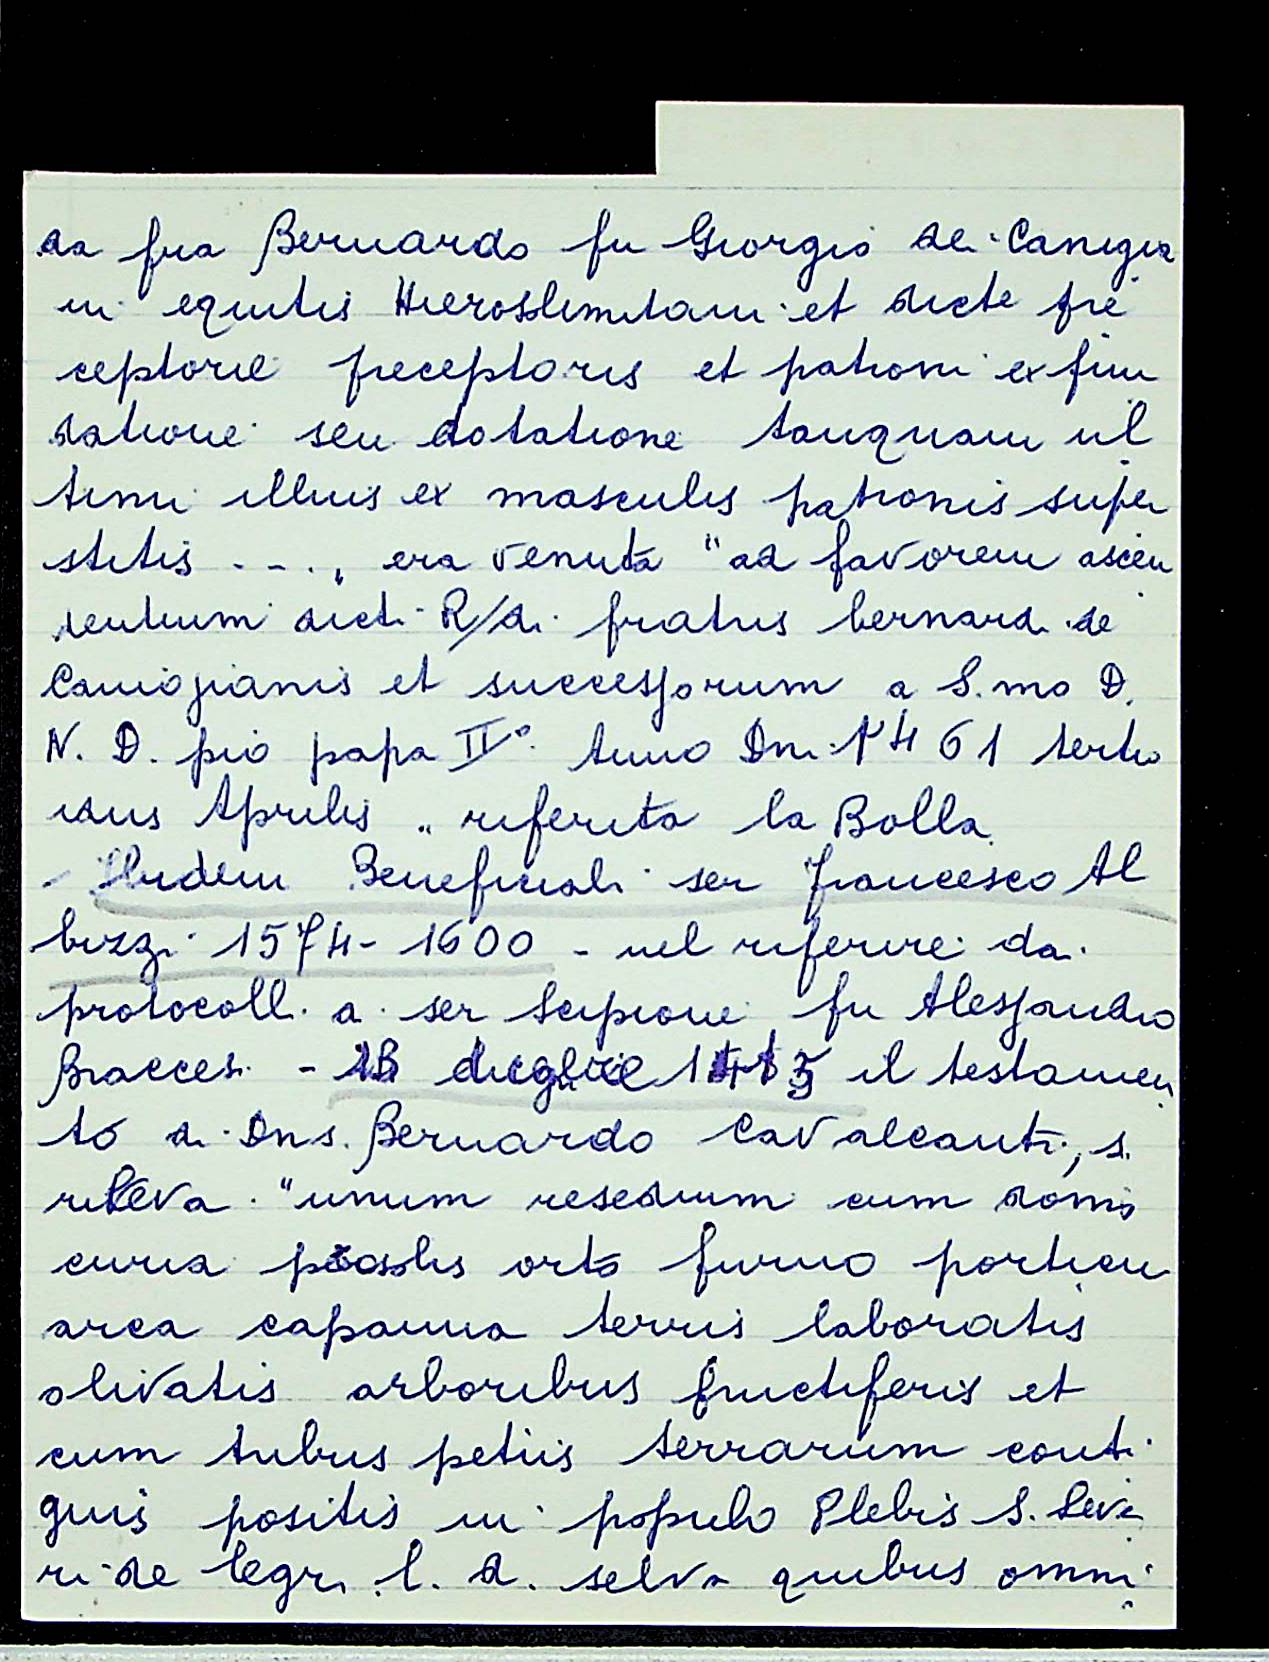 da fra Bernardo fu Giorgio de Canigia
ni equitis Hieroslimitani et dicte pre
ceptorie preceptoris et patroni ex fun
datione seu dotatione tanquam ul
timi illius ex masculis patronis super
stitis ...., era venuta "ad favorem ascen
dentium dicti R/di fratris bernardi de
Canigianis et successorum a S.mo D.
N. D. pio papa II° Anno Dni 1461 tertio
idus Aprilis" riferita la Bolla
- Ibidem Beneficiali ser francesco Al
bizzi 1574-1600 - nel riferire da
protocolli a ser Scipione fu Alessandro
Braccesi - luglio il testamen
to di Dns. Bernardo Cavalcanti, si
rileva "unum resedium cum domo
curia orto furno porticu
area capanna terris laboratis
olivatis arboribus fructiferis et
cum tribus petiis terrarum conti
guis positis in populo Plebis S. Seve
ri de legri l. d. selva quibus omni